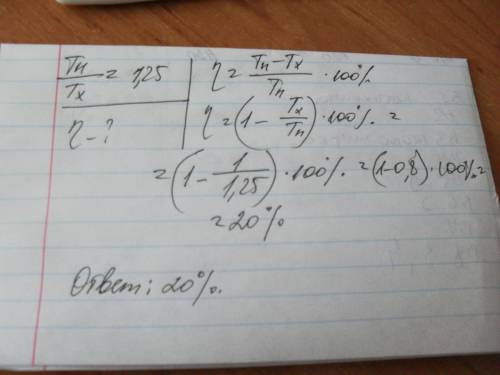 Tн/Tх = 1,25
η - ?
η = (Tн - Tх)/Tн · 100%
η = (1 - Tх/Tн) · 100% =
= (1 - 1/1,25) · 100% = (1-0,8) · 100% =
= 20%
Ответ: 20%.